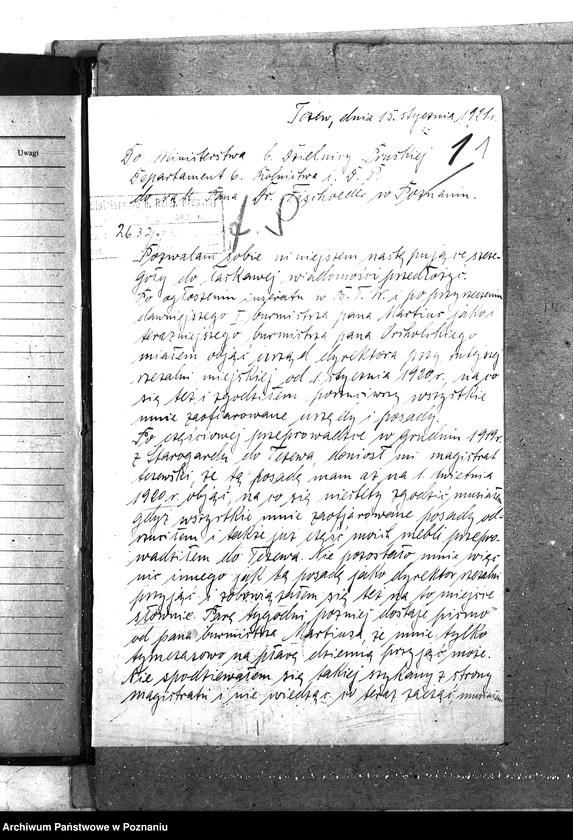 Uwagi
Tczew, dnia 15. stycznia 1921r.
1 1
Do Ministerstwa b. Dzielnicy Pruskiej
Departament 6. Rolnictwa i. D. P.
do rąk Pana Dr. w Poznaniu.
Pozwalam sobie niniejszem następujące szcze-
góły do łaskawej wiadomości przedłożyć.
Po ogłoszeniu inseratu w i po przyrzeczeniu
dawniejszego I burmistrza pana Martius jako i
teraźniejszego burmistrza pana Orcholskiego
miałem objąć urząd dyrektora przy tutejszej
rzezalni miejskiej od 1. stycznia 1920r, na co
się też i zgodziłem porzuciwszy wszystkie
mnie zaofiarowane urzędy i posady.
Po częściowej przeprowadzce w grudniu 1919r.
z Starogardu do Tczewa, doniósł mi magistrat
tczewski, że tą posadę mam aż na 1. kwietnia
1920 r. objąć, na co się niestety zgodzić musiałem
gdyż wszystkie mnie zaofiarowane posady od-
rzuciłem i także już część moich mebli przepro-
wadziłem do Tczewa. Nie pozostało mnie więc
nic innego jak tą posadę jako dyrektor rzezalni
przyjąć i zobowiązałem się też na to miejsce
słownie. Parę tygodni pozniej dostaję pismo
od pana burmistrza Martiusa, że mnie tylko
tymczasowo na płacę dzienną przyjąć może.
Nie spodziewałem się takiej szykany z strony
magistratu i nie wiedząc co teraz zacząć musiałem
Archiwum Państwowe w Poznaniu